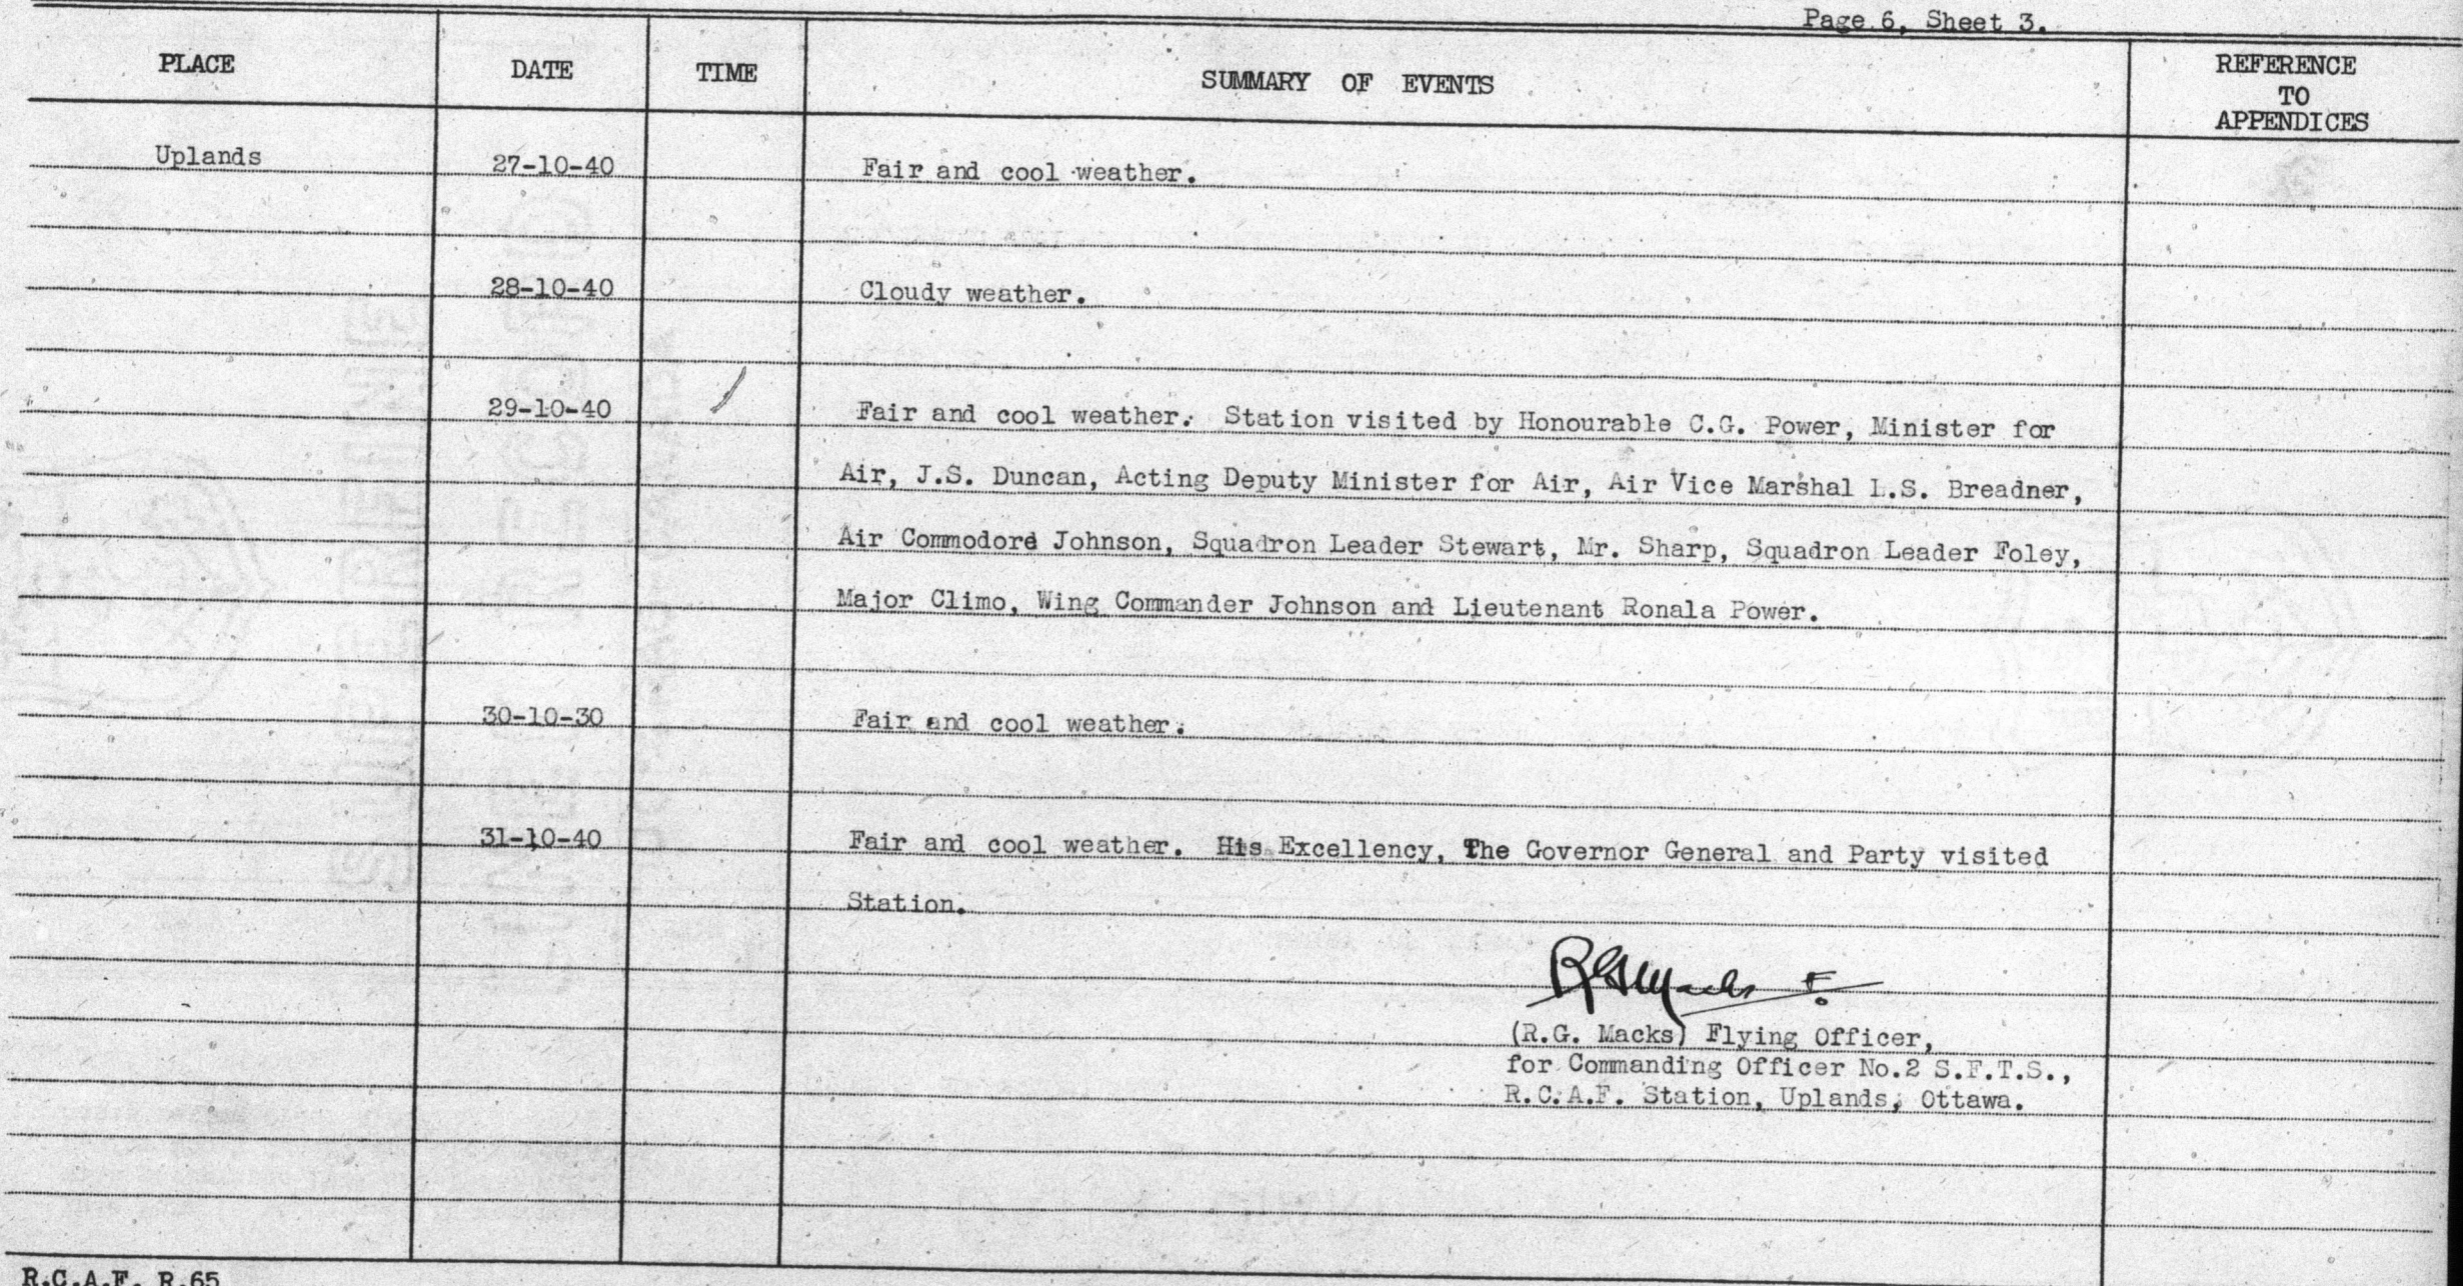 Page 6, Sheet 3.
PLACE DATE TIME SUMMARY OF EVENTS REFERENCE TO APPENDICES
Uplands 27-10-40 Fair and cool weather.
28-10-40 Cloudy weather.
29-10-40 Fair and cool weather. Station visited by Honourable C.G. Power, Minister for
Air, J.S. Duncan, Acting Deputy Minister for Air, Air Vice Marshal L.S. Breadner,
Air Commodore Johnson, Squadron Leader Stewart, Mr. Sharp, Squadron Leader Foley,
Major Climo, Wing Commander Johnson and Lieutenant Ronala Power.
30-10-30 Fair and cool weather.
31-10-40 Fair and cool weather. His Excellency, The Governor General and Party visited
Station.
RGMacks F.O.
(R.G. Macks) Flying Officer,
for Commanding Officer No.2 S.F.T.S.,
R.C.A.F. Station, Uplands, Ottawa.
R.C.A.F. R.65